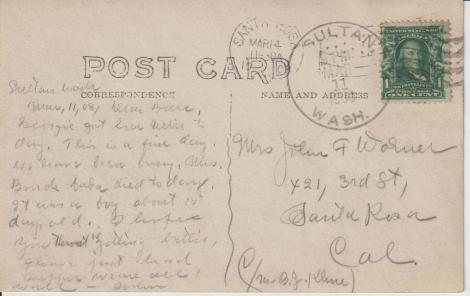 SANTA ROSA
MAR 14
SULTAN
MAR
11
1908
WASH.
1 ONE CENT 1
POST CARD
CORRESPONDENCE
NAME AND ADDRESS
Sultan Wash
Mar, 11, 08, Dear
Georgie got her letter to
day. This is a fine day.
we have been busy, Mrs.
baby died to day,
it was a boy about 10
days old. I hope
you are getting better,
have just had
supper we are all
well
Mrs John F Warner
421, 3rd St,
Santa Rosa
Cal.
c/o Mrs B. J.